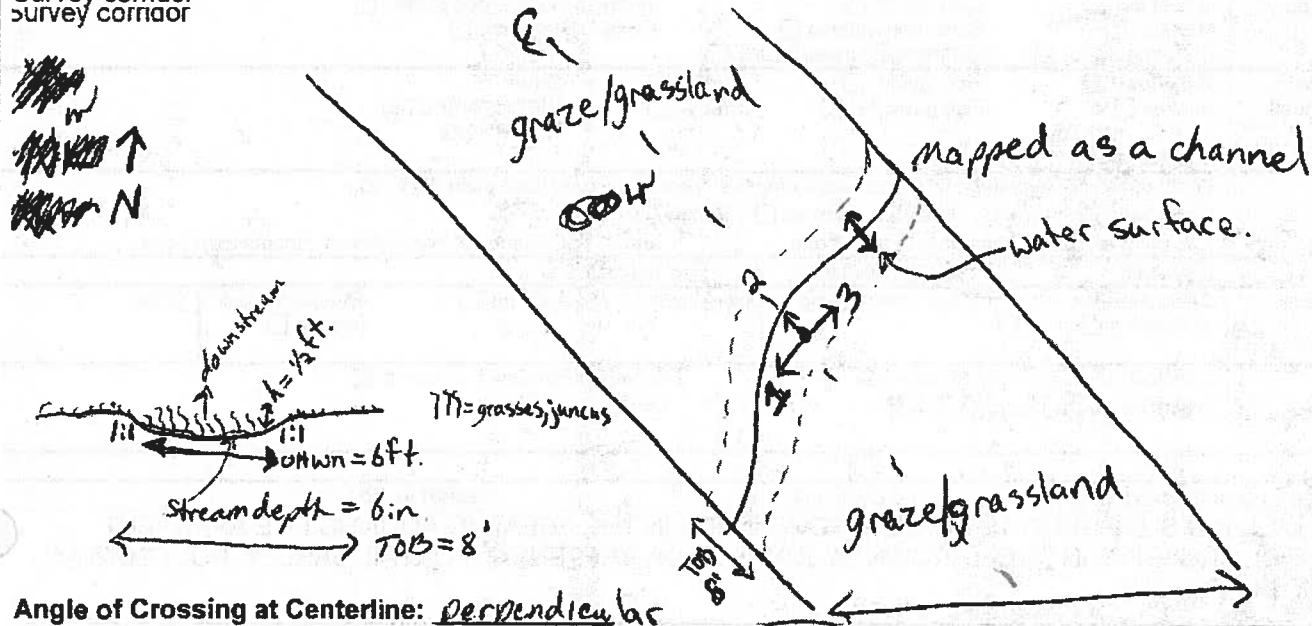 Survey corridor
Survey corridor
N
℄
graze/grassland
mapped as a channel
water surface.
2
3
downstream
h = 1/2 ft.
= grasses, juncus
1:1
1:1
OHWM = 6 ft.
stream depth = 6 in
TOB = 8'
graze/grassland
TOB
8'
Angle of Crossing at Centerline: perpendicular